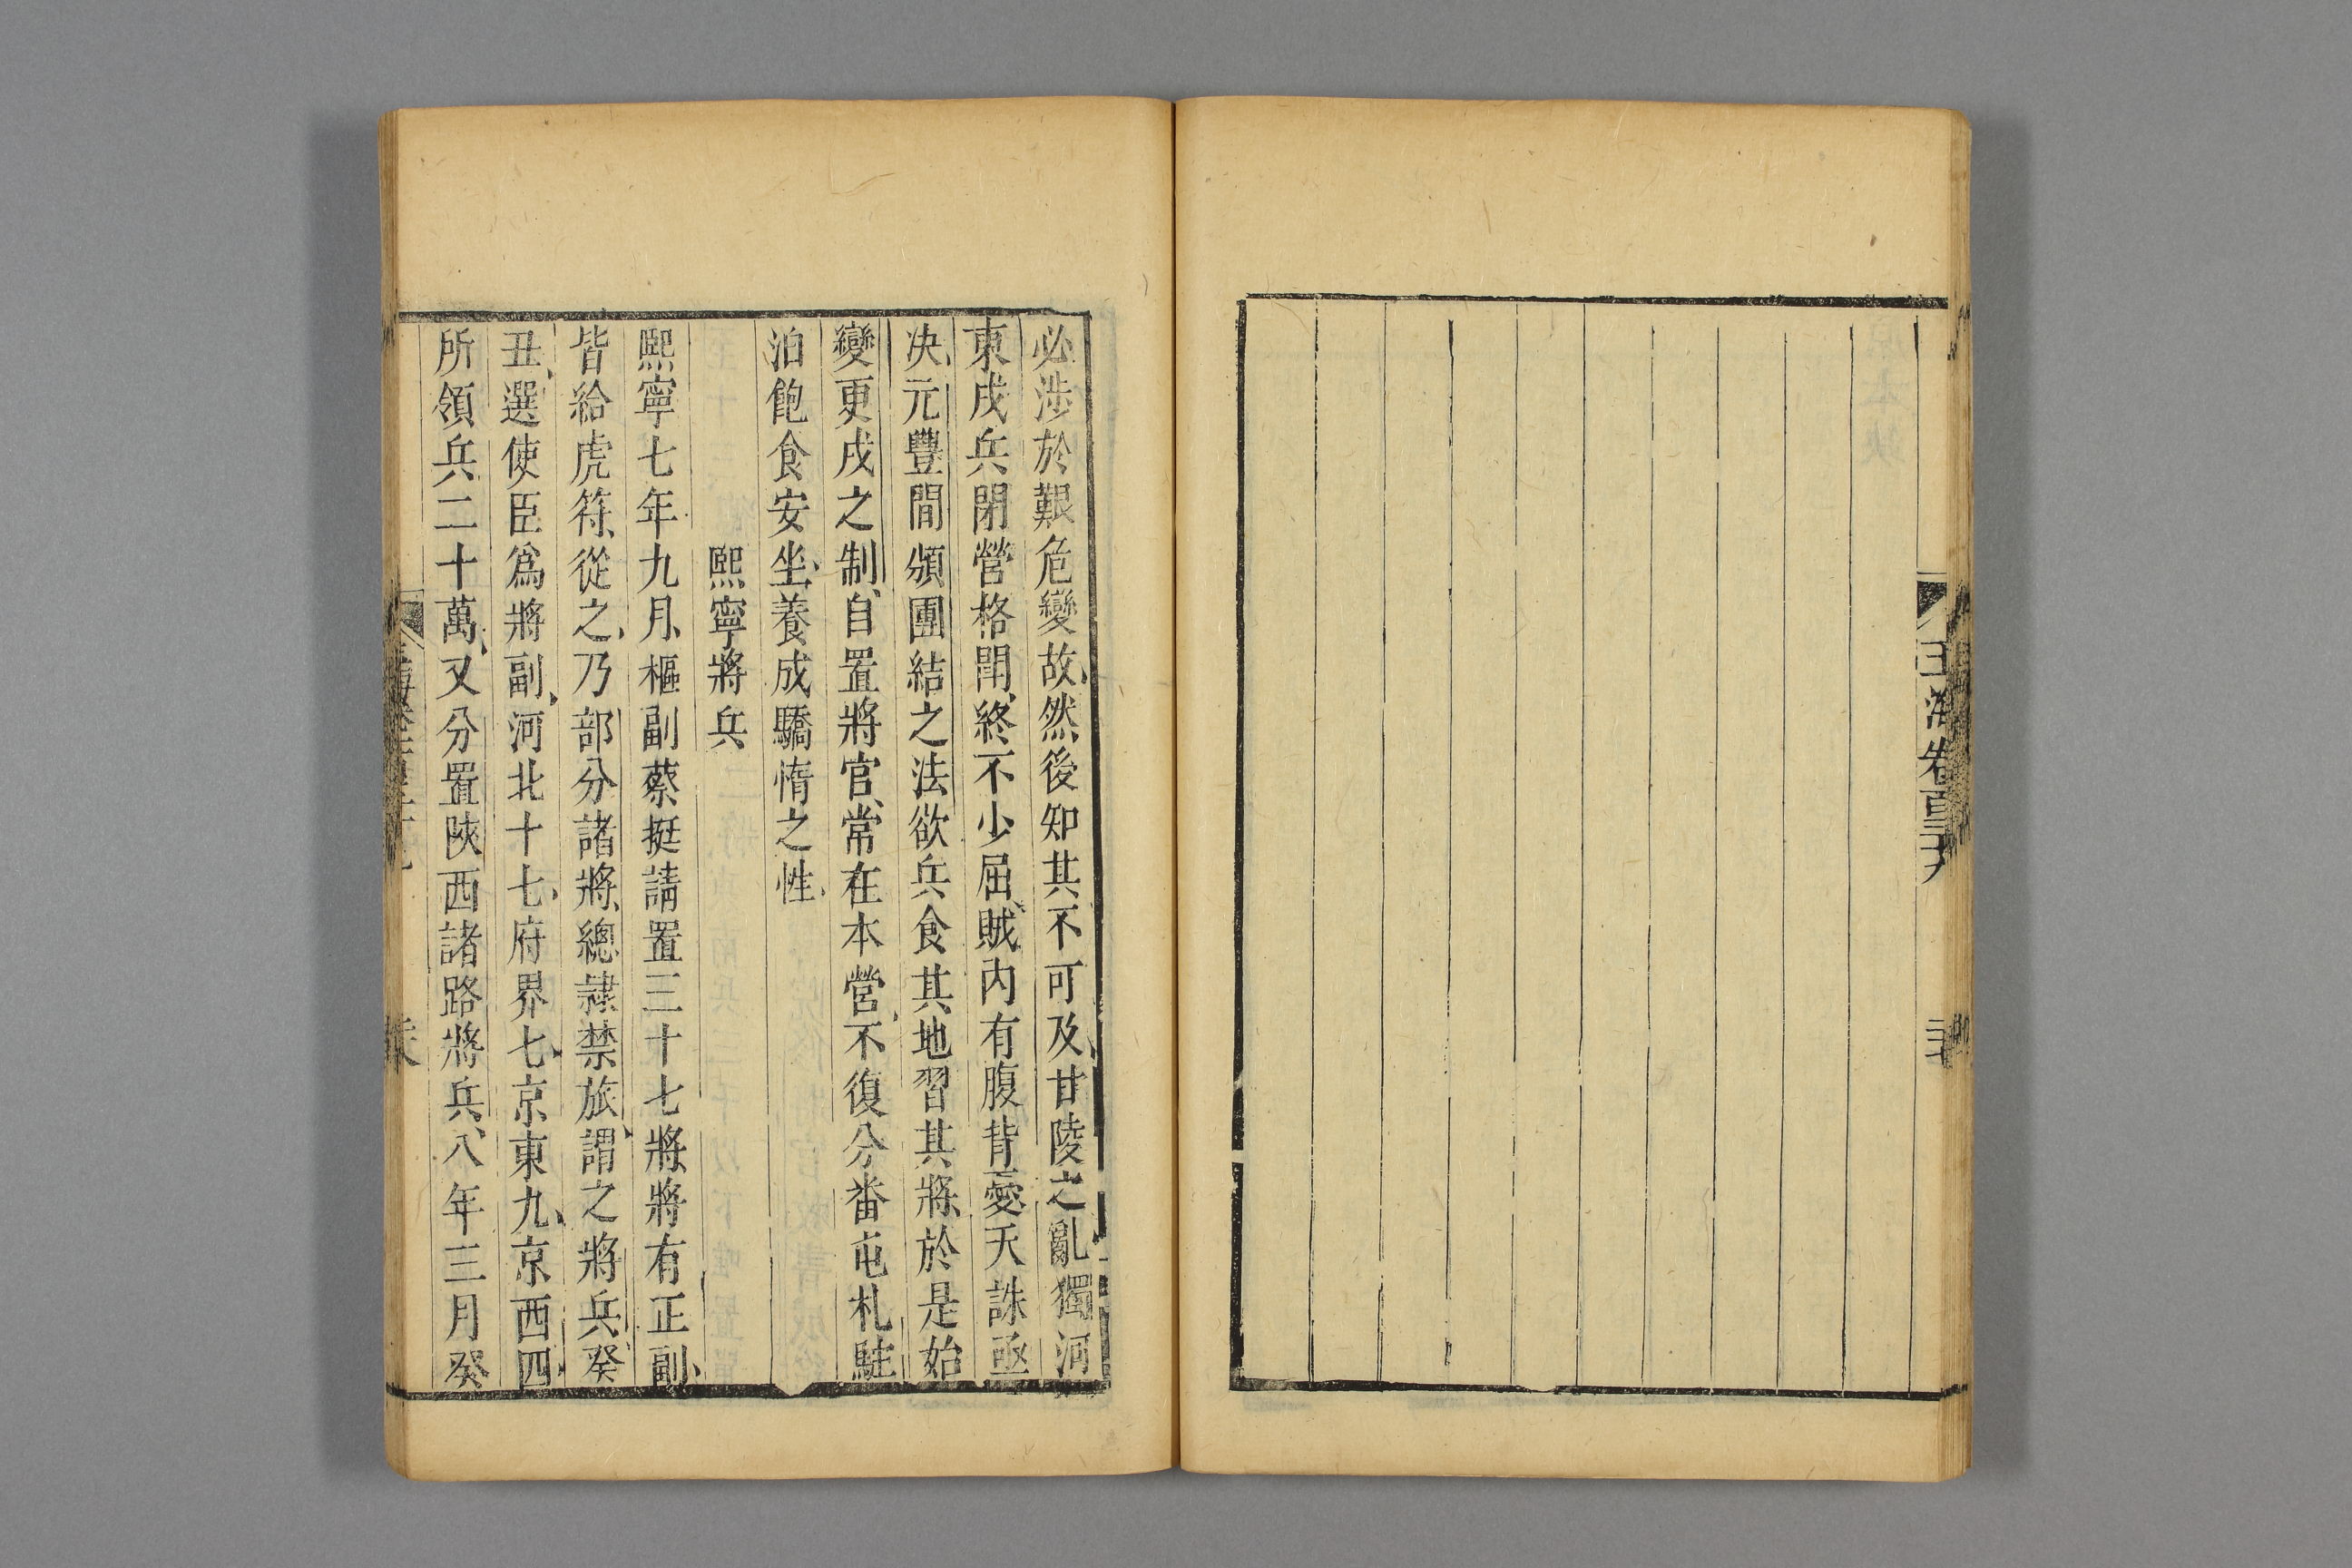 玉海卷百三十九
必涉於艱危變故、然後知其不可及、甘陵之亂獨河
東戍兵閉營格鬥、終不少屈、賊内有腹背憂天誅亟
决、元豐間頒團結之法欲兵食其地習其將、於是始
變更戍之制、自置將官、常在本營、不復分番屯札駐
泊飽食安坐、養成驕惰之性、
熙寧將兵
熙寧七年九月、樞副蔡挺請置三十七將、將有正副、
皆給虎符、從之、乃部分諸將、總隷禁旅、謂之將兵、癸
丑、選使臣爲將副、河北十七、府界七、京東九、京西四、
所領兵二十萬、又分置陝西諸路將兵、八年三月癸